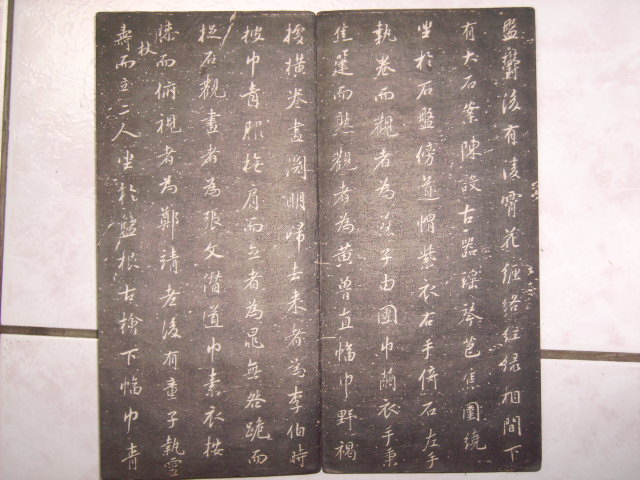 盤欝後有凌霄花纏絡紅緑相間下
有大石案陳設古器瑶琴芭焦圍繞
坐於石盤傍道帽紫衣右手倚石左手
執卷而觀者為蘇子由團巾繭衣手秉
焦箑而熟觀者為黄魯直幅巾野褐
據横卷畫淵明歸去来者為李伯時
披巾青服撫肩而立者為晁無咎跪而
捉石觀畫者為張文潛道巾素衣按
膝而俯視者為鄭靖老後有童子執靈
壽杖而立二人坐於盤根古檜下幅巾青